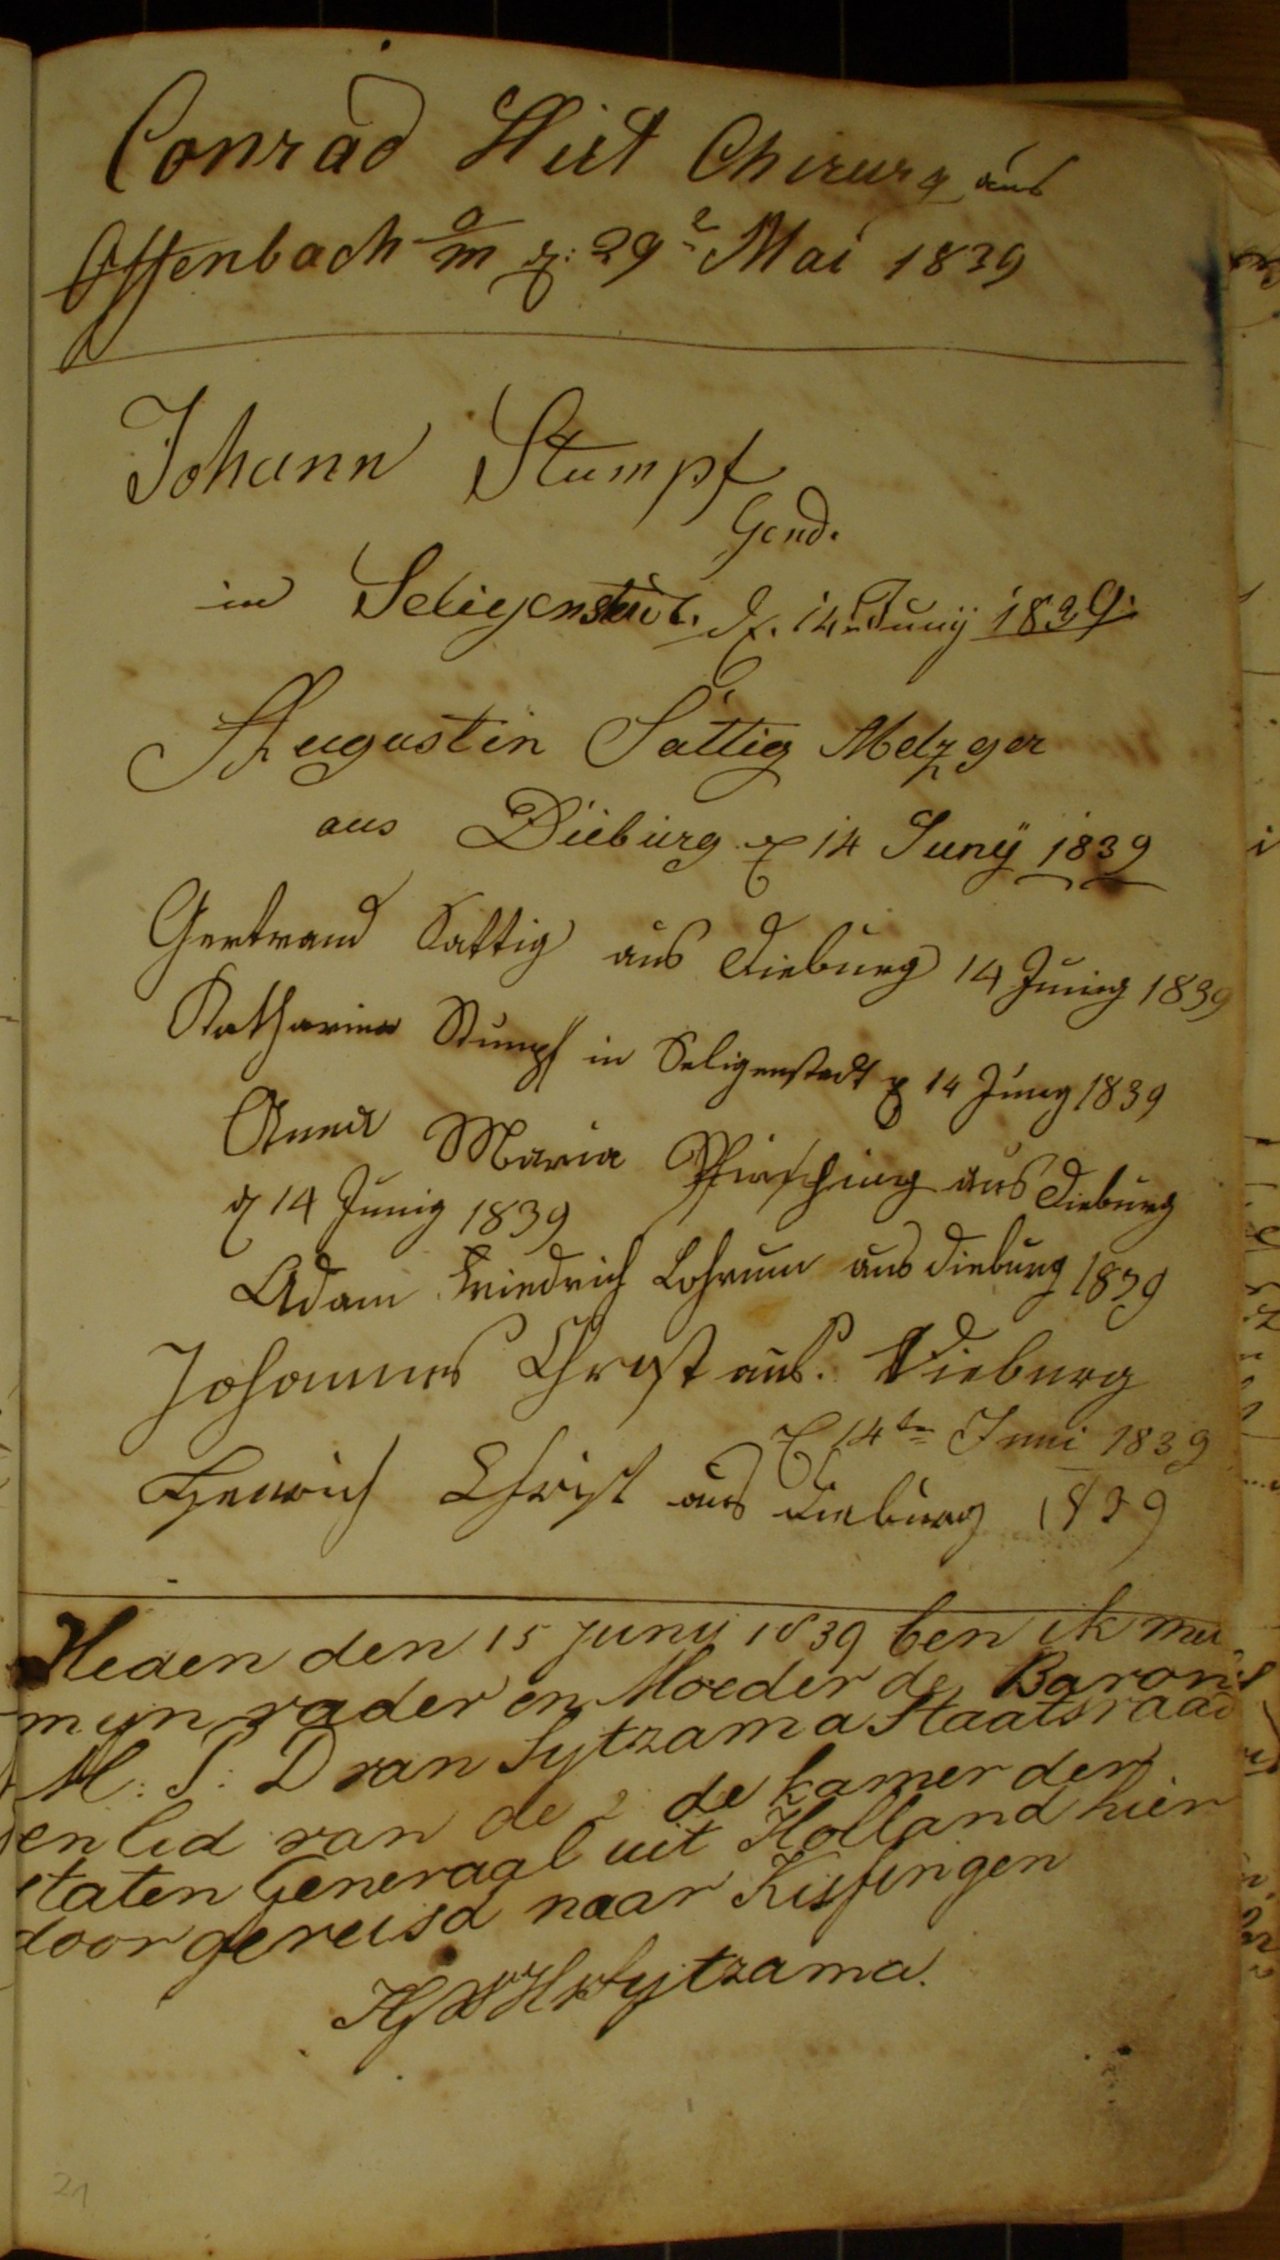 Conrad Hirt Chirurg aus
Offenbach a/m d: 29e Mai 1839
Johann Stumpf
Gend.
in Seligenstadt. d. 14t Junÿ 1839.
Augustin Sattig Metzger
aus Dieburg d 14 Junÿ 1839
Gertraud Sattig aus Dieburg 14 Juny 1839
Katharina Stumpf in Seligenstadt d 14 Juny 1839
Anna Maria Pfirsching aus Dieburg
d 14 Juny 1839
Adam Friedrich Lohrum aus Dieburg 1839
Johannes Christ aus. Dieburg
d 14ten Juni 1839
Heinrich Christ aus Dieburg 1839
Heden den 15 Juny 1839 ben ik met
myn vader en Moeder de Baron
M: P: D van Sytzama Staatsraad
en lid van de 2 de kamer der
Staten Generaal uit Holland hier
door gereisd naar Kissingen
Sytzama.
21